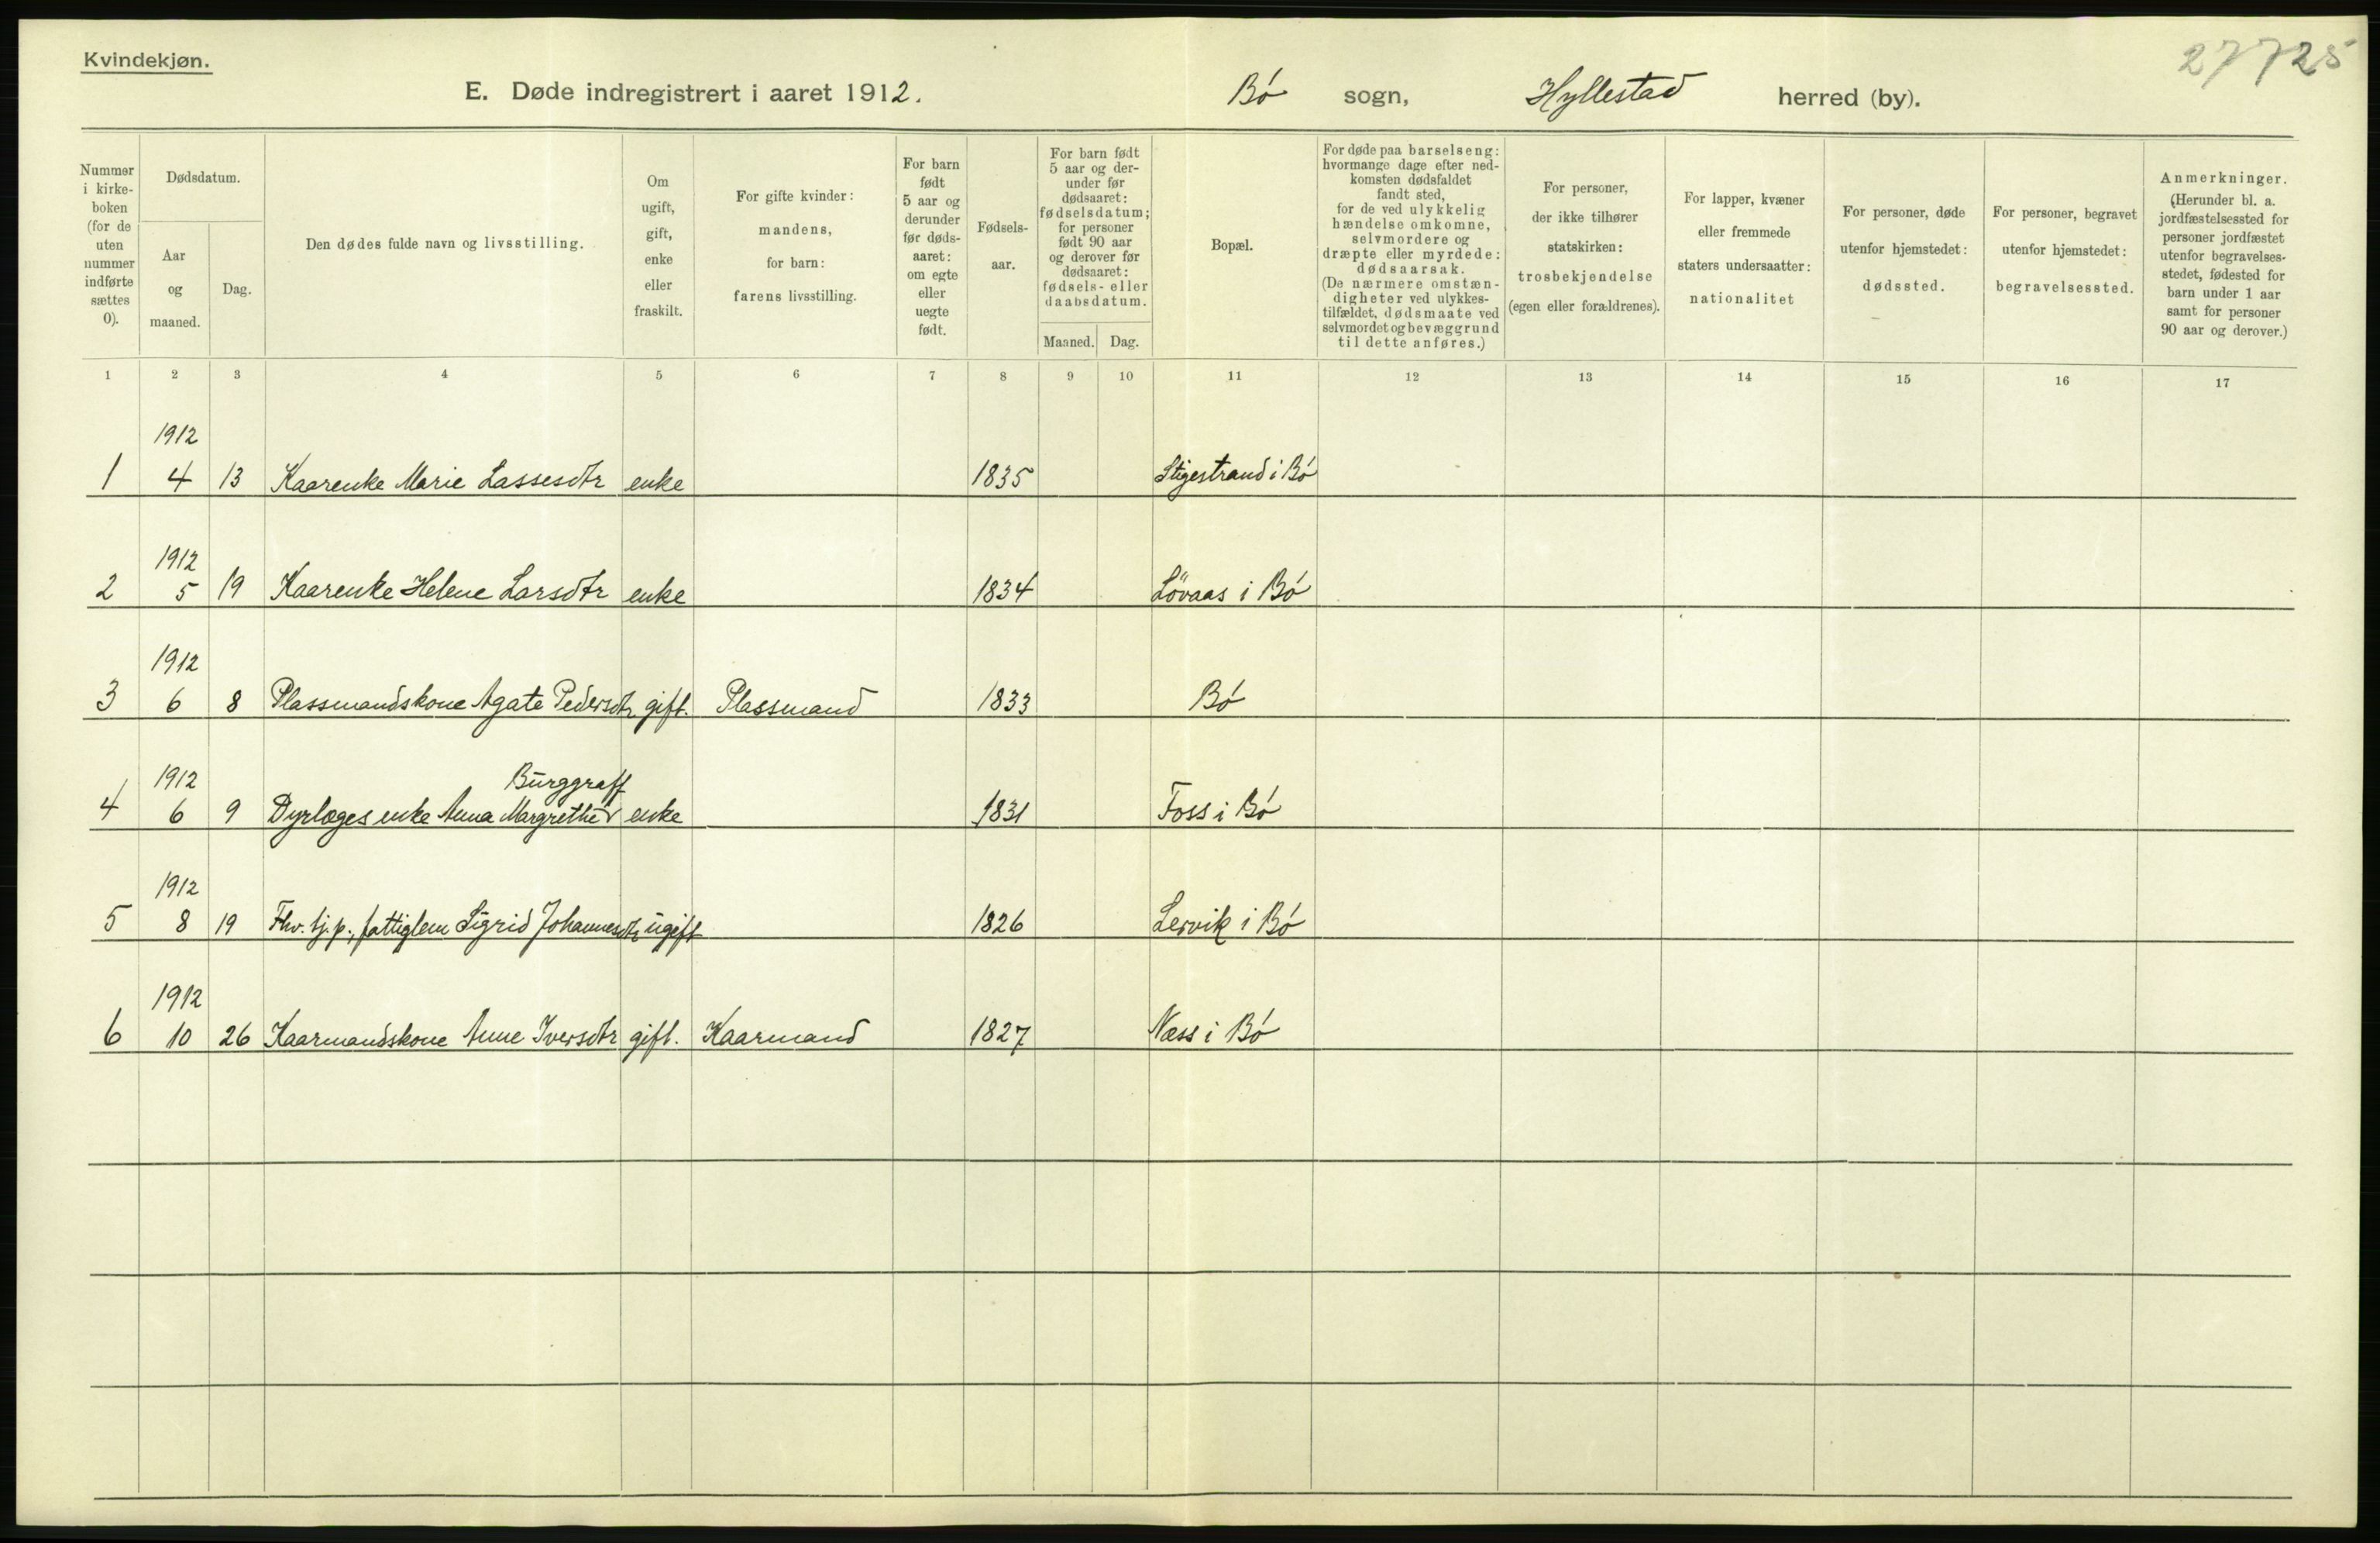 Kvindekjøn.
27725
E. Døde indregistrert i aaret 1912. Bø sogn, Hyllestad herred (by).
Nummer
i kirke-
boken
(for de
uten
nummer
indførte
sættes
0).
Dødsdatum.
Aar
og
maaned.
Dag.
Den dødes fulde navn og livsstilling.
Om
ugift,
gift,
enke
eller
fraskilt.
For gifte kvinder:
mandens,
for barn:
farens livsstilling.
For barn
født
5 aar og
derunder
før døds-
aaret:
om egte
eller
uegte
født.
Fødsels-
aar.
For barn født
5 aar og der-
under før
dødsaaret:
fødselsdatum;
for personer
født 90 aar
og derover før
dødsaaret:
fødsels- eller
daabsdatum.
Maaned. Dag.
Bopæl.
For døde paa barselseng:
hvormange dage efter ned-
komsten dødsfaldet
fandt sted,
for de ved ulykkelig
hændelse omkomne,
selvmordere og
dræpte eller myrdede:
dødsaarsak.
(De nærmere omstæn-
digheter ved ulykkes-
tilfældet, dødsmaate ved
selvmordet og bevæggrund
til dette anføres.)
For personer,
der ikke tilhører
statskirken:
trosbekjendelse
(egen eller forældrenes).
For lapper, kvæner
eller fremmede
staters undersaatter:
nationalitet
For personer, døde
utenfor hjemstedet:
dødssted.
For personer, begravet
utenfor hjemstedet:
begravelsessted.
Anmerkninger.
(Herunder bl. a.
jordfæstelsessted for
personer jordfæstet
utenfor begravelses-
stedet, fødested for
barn under 1 aar
samt for personer
90 aar og derover.)
1 2 3 4 5 6 7 8 9 10 11 12 13 14 15 16 17
1912
1 4 13 Kaarenke Marie Lassesdtr enke 1835 Stigestrand i Bø
1912
2 5 19 Kaarenke Helene Larsdtr enke 1834 Lövaas i Bø
1912
3 6 8 Plassmandskone Agate Pedersdtr gift. Plassmand 1833 Bø
1912 Burggraff
4 6 9 Dyrlæges enke Anna Margrethe enke 1831 Foss i Bø
1912
5 8 19 Fhv. tj.p., fattiglem Sigrid Johannesdtr ugift 1826 Lervik i Bø
1912
6 10 26 Kaarmandskone Anne Iversdtr gift. Kaarmand 1827 Næss i Bø